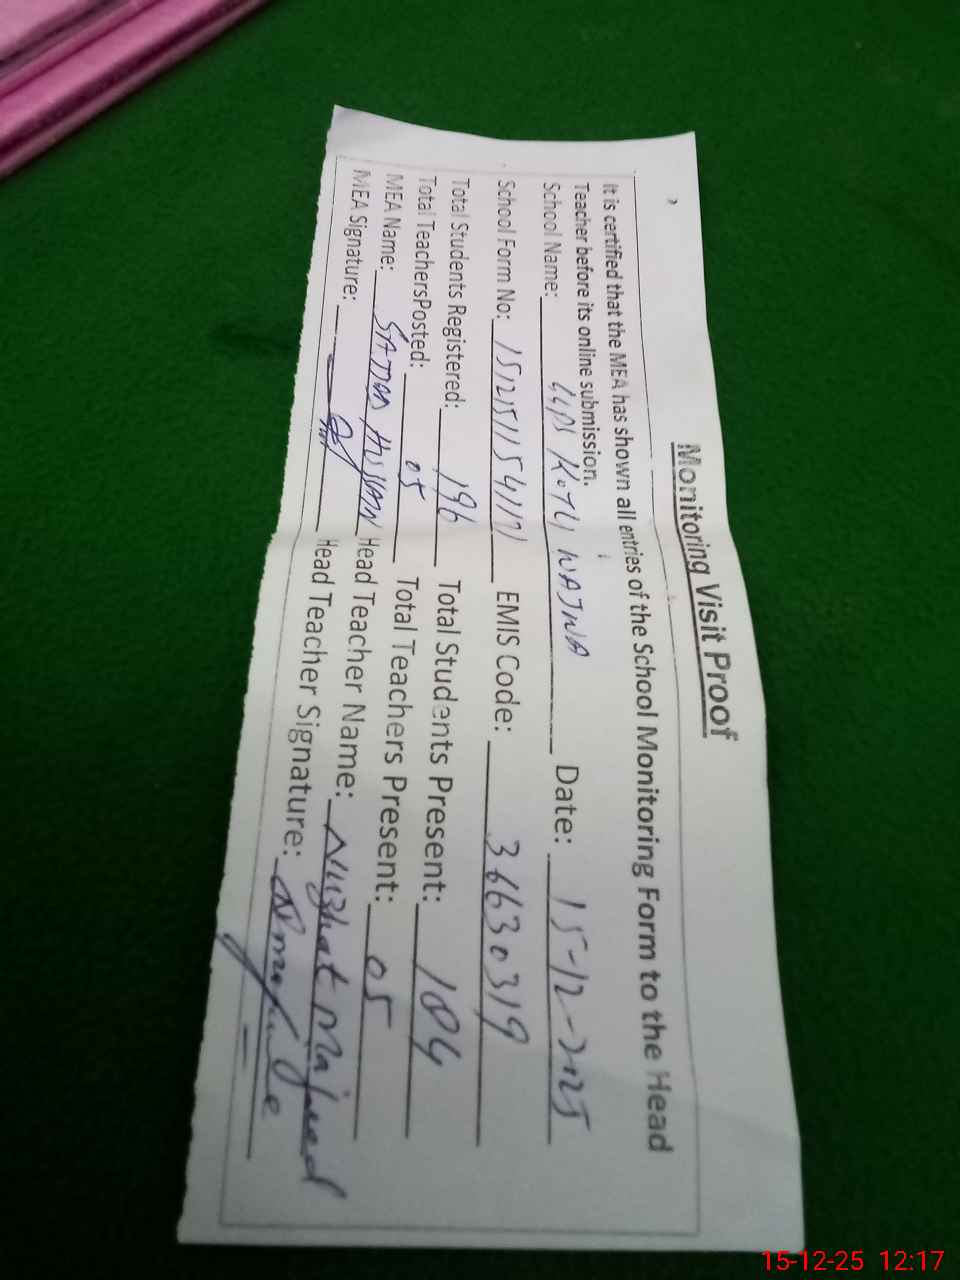 Monitoring Visit Proof
It is certified that the MEA has shown all entries of the School Monitoring Form to the Head
Teacher before its online submission.
School Name: WAJWA Date: 15-12-2025
School Form No: EMIS Code: 36630319
Total Students Registered: 196 Total Students Present: 184
Total TeachersPosted: 05 Total Teachers Present: 05
MEA Name: Hussain Head Teacher Name: Nuzhat Majeed
MEA Signature: Head Teacher Signature:
15-12-25 12:17